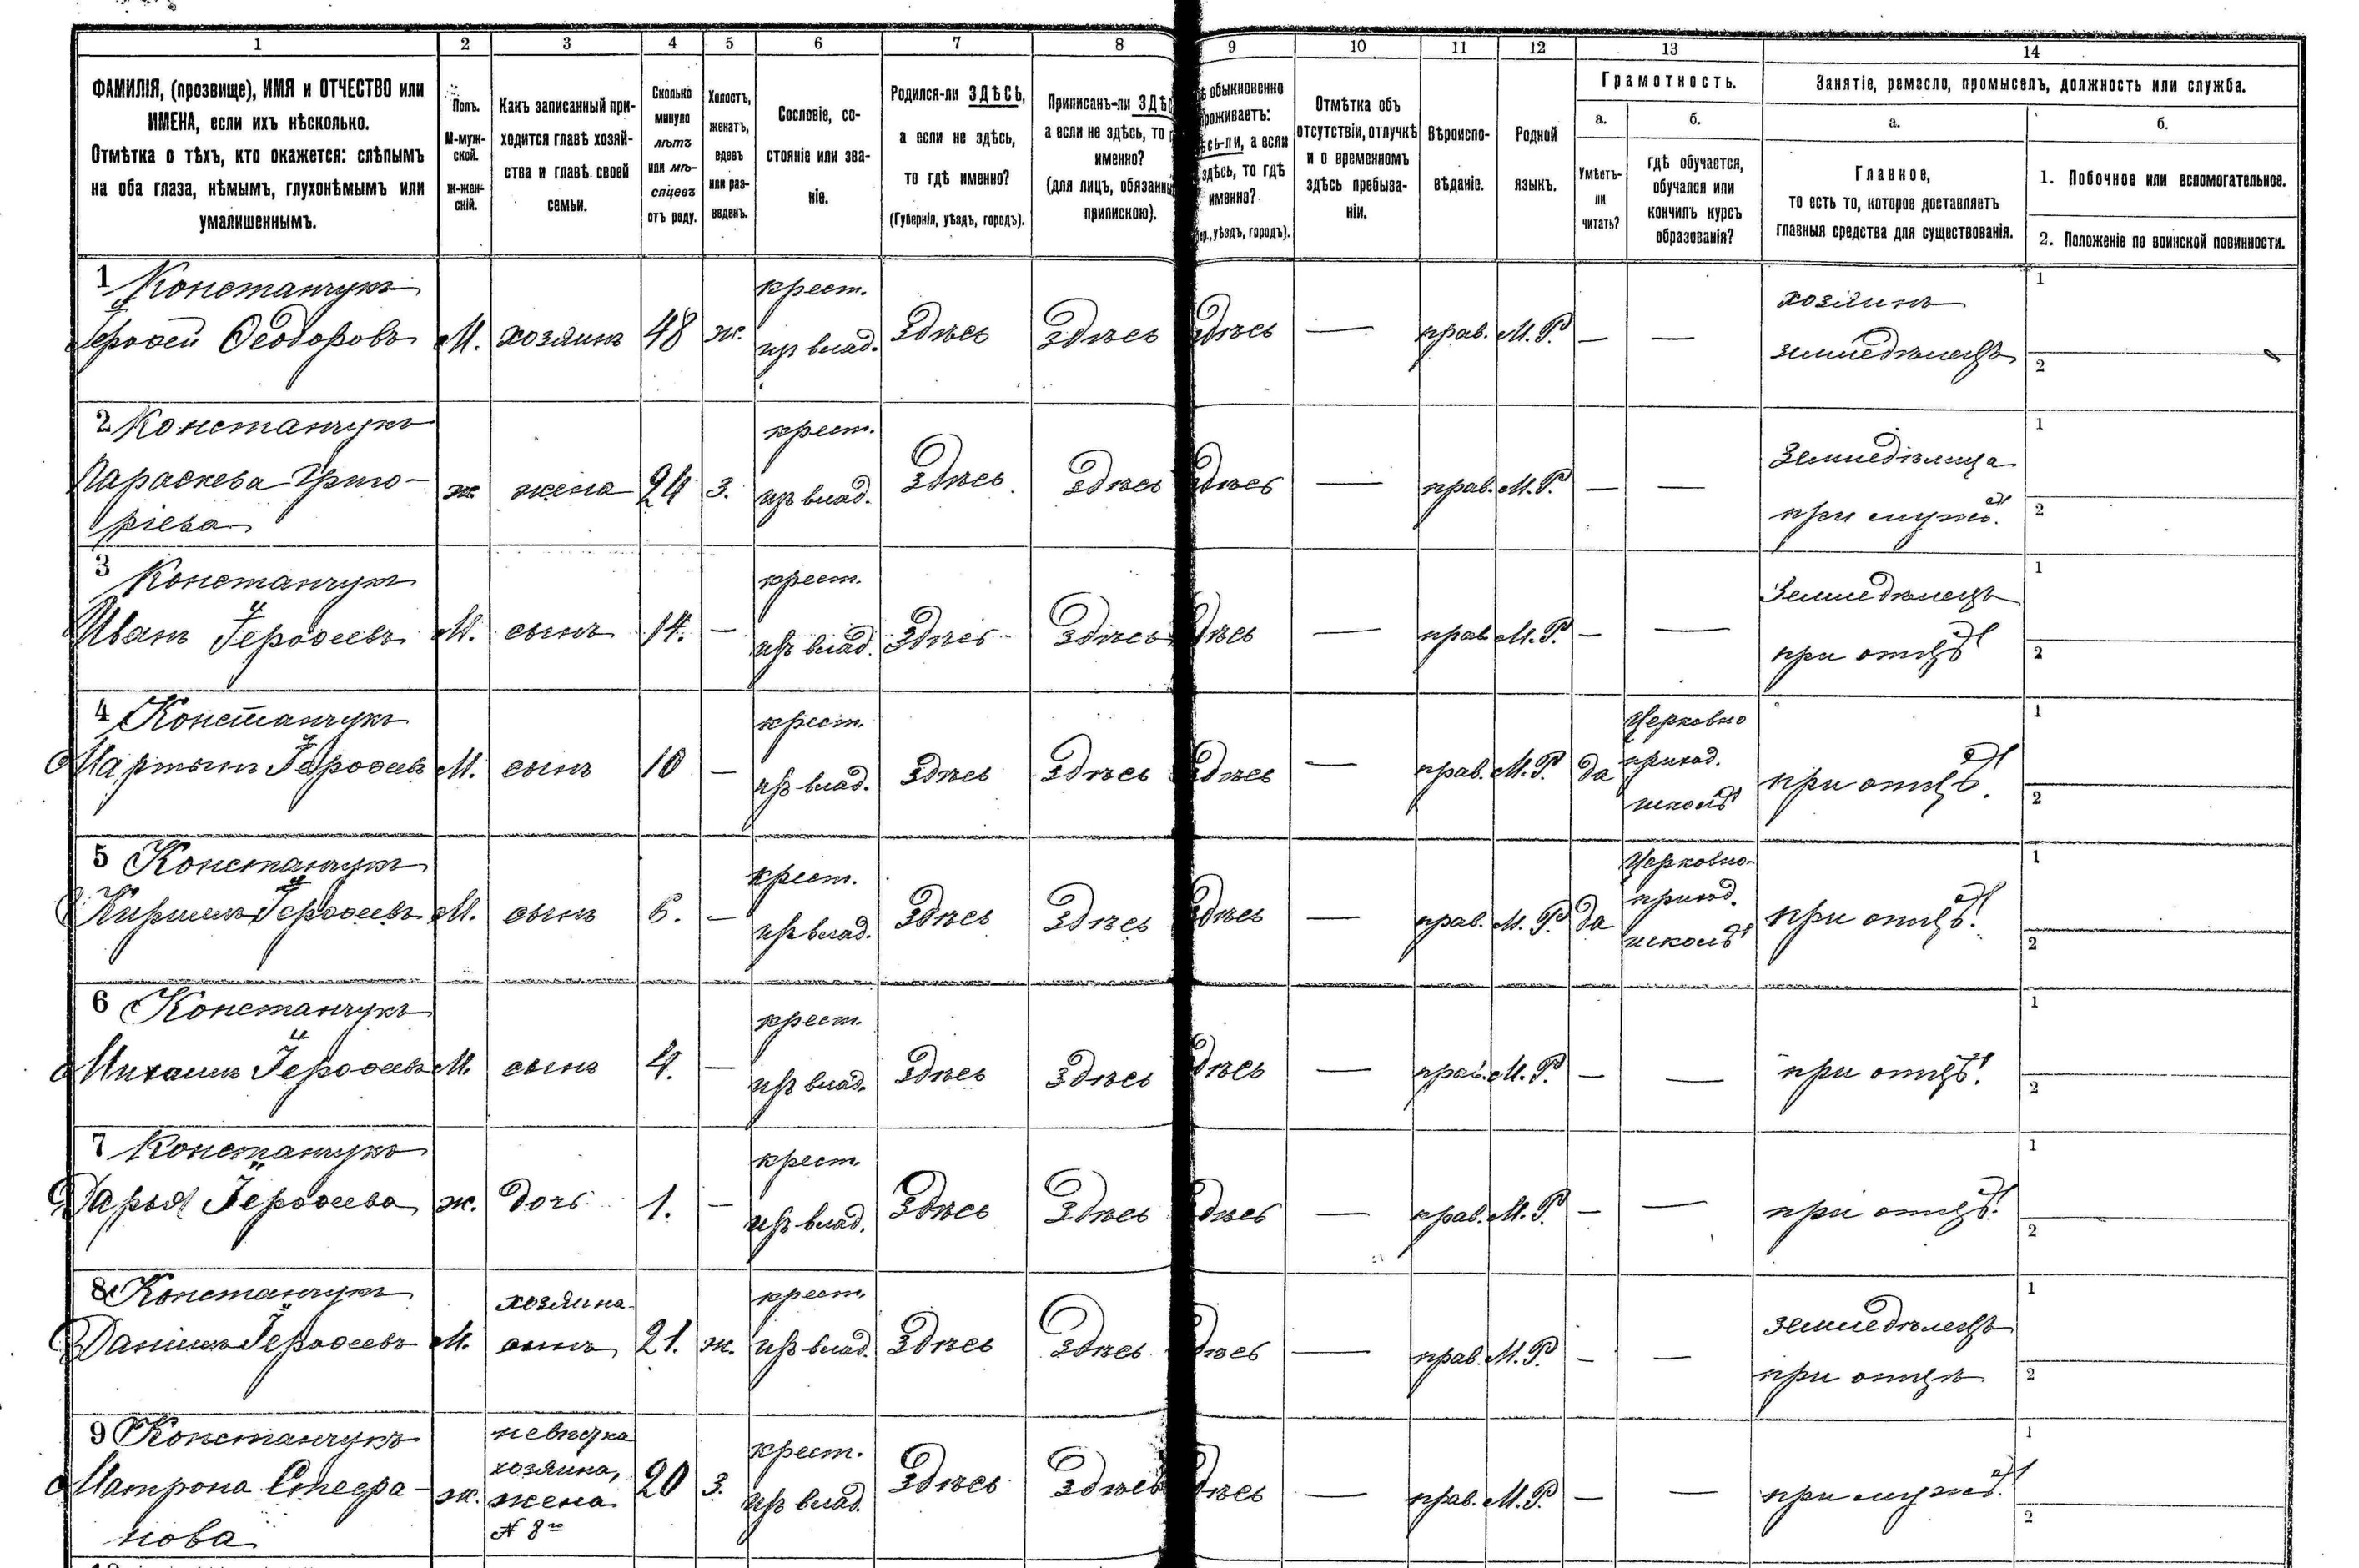 1
2
3
4
5
6
7
8
9
10
11
12
13
14
ФАМИЛІЯ, (прозвище), ИМЯ и ОТЧЕСТВО или
ИМЕНА, если ихъ нѣсколько.
Отмѣтка о тѣхъ, кто окажется: слѣпымъ
на оба глаза, нѣмымъ, глухонѣмымъ или
умалишеннымъ.
Полъ.
М-муж-
ской.
ж-жен-
скій.
Какъ записанный при-
ходится главѣ хозяй-
ства и главѣ своей
семьи.
Сколько
минуло
лѣтъ
или мѣ-
сяцевъ
отъ роду.
Холостъ,
женатъ,
вдовъ
или раз-
веденъ.
Сословіе, со-
стояніе или зва-
ніе.
Родился-ли ЗДѢСЬ,
а если не здѣсь,
то гдѣ именно?
(Губернія, уѣздъ, городъ).
Приписанъ-ли
а если не здѣсь, то
именно?
(для лицъ,
припискою).
обыкновенно
а если
здѣсь, то гдѣ
именно?
уѣздъ, городъ).
Отмѣтка объ
отсутствіи, отлучкѣ
и о временномъ
здѣсь пребыва-
ніи.
Вѣроиспо-
вѣданіе.
Родной
языкъ.
Грамотность.
а.
Умѣетъ-
ли
читать?
б.
гдѣ обучается,
обучался или
кончилъ курсъ
образованія?
Занятіе, ремесло, промыселъ, должность или служба.
а.
Главное,
то есть то, которое доставляетъ
главныя средства для существованія.
б.
1. Побочное или вспомогательное.
2. Положеніе по воинской повинности.
1 Констанчукъ
Іерофей Ѳеодоровъ
М.
хозяинъ
48
ж.
крест.
изъ влад.
Здѣсь
Здѣсь
Здѣсь
—
прав.
М. Р.
—
—
хозяинъ
земледѣлецъ
1
2
2 Констанчукъ
Параскева Григо-
ріева
ж
жена
24
з.
крест.
изъ влад.
Здѣсь
Здѣсь
Здѣсь
—
прав.
М. Р.
—
—
Земледѣлица
при мужѣ.
1
2
3
Констанчукъ
Иванъ Іерофеевъ
М.
сынъ
14.
—
крест.
изъ влад.
Здѣсь
Здѣсь
Здѣсь
—
прав
М. Р.
—
—
Земледѣлецъ
при отцѣ
1
2
4 Констанчукъ
Мартынъ Іерофеевъ
М.
сынъ
10
—
крест.
изъ влад.
Здѣсь
Здѣсь
Здѣсь
—
прав.
М. Р.
да
Церковно
приход.
школѣ
при отцѣ.
1
2
5 Констанчукъ
Кириллъ Іерофеевъ
М.
сынъ
6.
—
крест.
изъ влад.
Здѣсь
Здѣсь
Здѣсь
—
прав.
М. Р.
да
Церковно-
приход.
школѣ
при отцѣ.
1
2
6 Констанчукъ
Михаилъ Іерофеевъ
М.
сынъ
4.
—
крест.
изъ влад.
Здѣсь
Здѣсь
Здѣсь
—
прав.
М. Р.
—
—
при отцѣ.
1
2
7 Констанчукъ
Дарья Іерофеева
ж.
дочь
1.
—
крест.
изъ влад.
Здѣсь
Здѣсь
Здѣсь
—
прав.
М. Р.
—
—
при отцѣ.
1
2
8 Констанчукъ
Даніилъ Іерофеевъ
М.
хозяина
сынъ
21.
ж.
крест.
изъ влад.
Здѣсь
Здѣсь
Здѣсь
—
прав.
М. Р.
—
—
земледѣлецъ
при отцѣ
1
2
9 Констанчукъ
Матрона Стефа-
нова
ж.
невѣстка
хозяина,
жена
№ 8го
20
з.
крест.
изъ влад.
Здѣсь
Здѣсь
Здѣсь
—
прав.
М. Р.
—
—
при мужѣ.
1
2